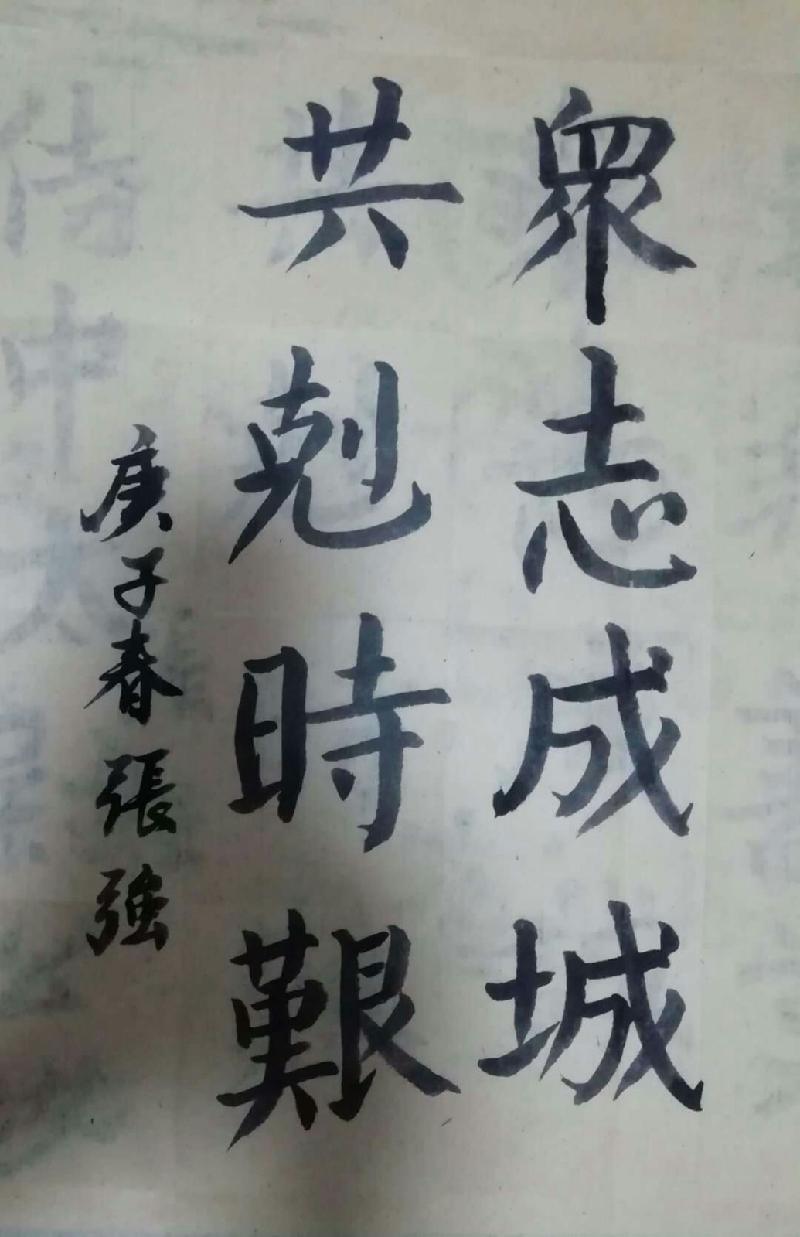 眾志成城
共剋時艱
庚子春張強